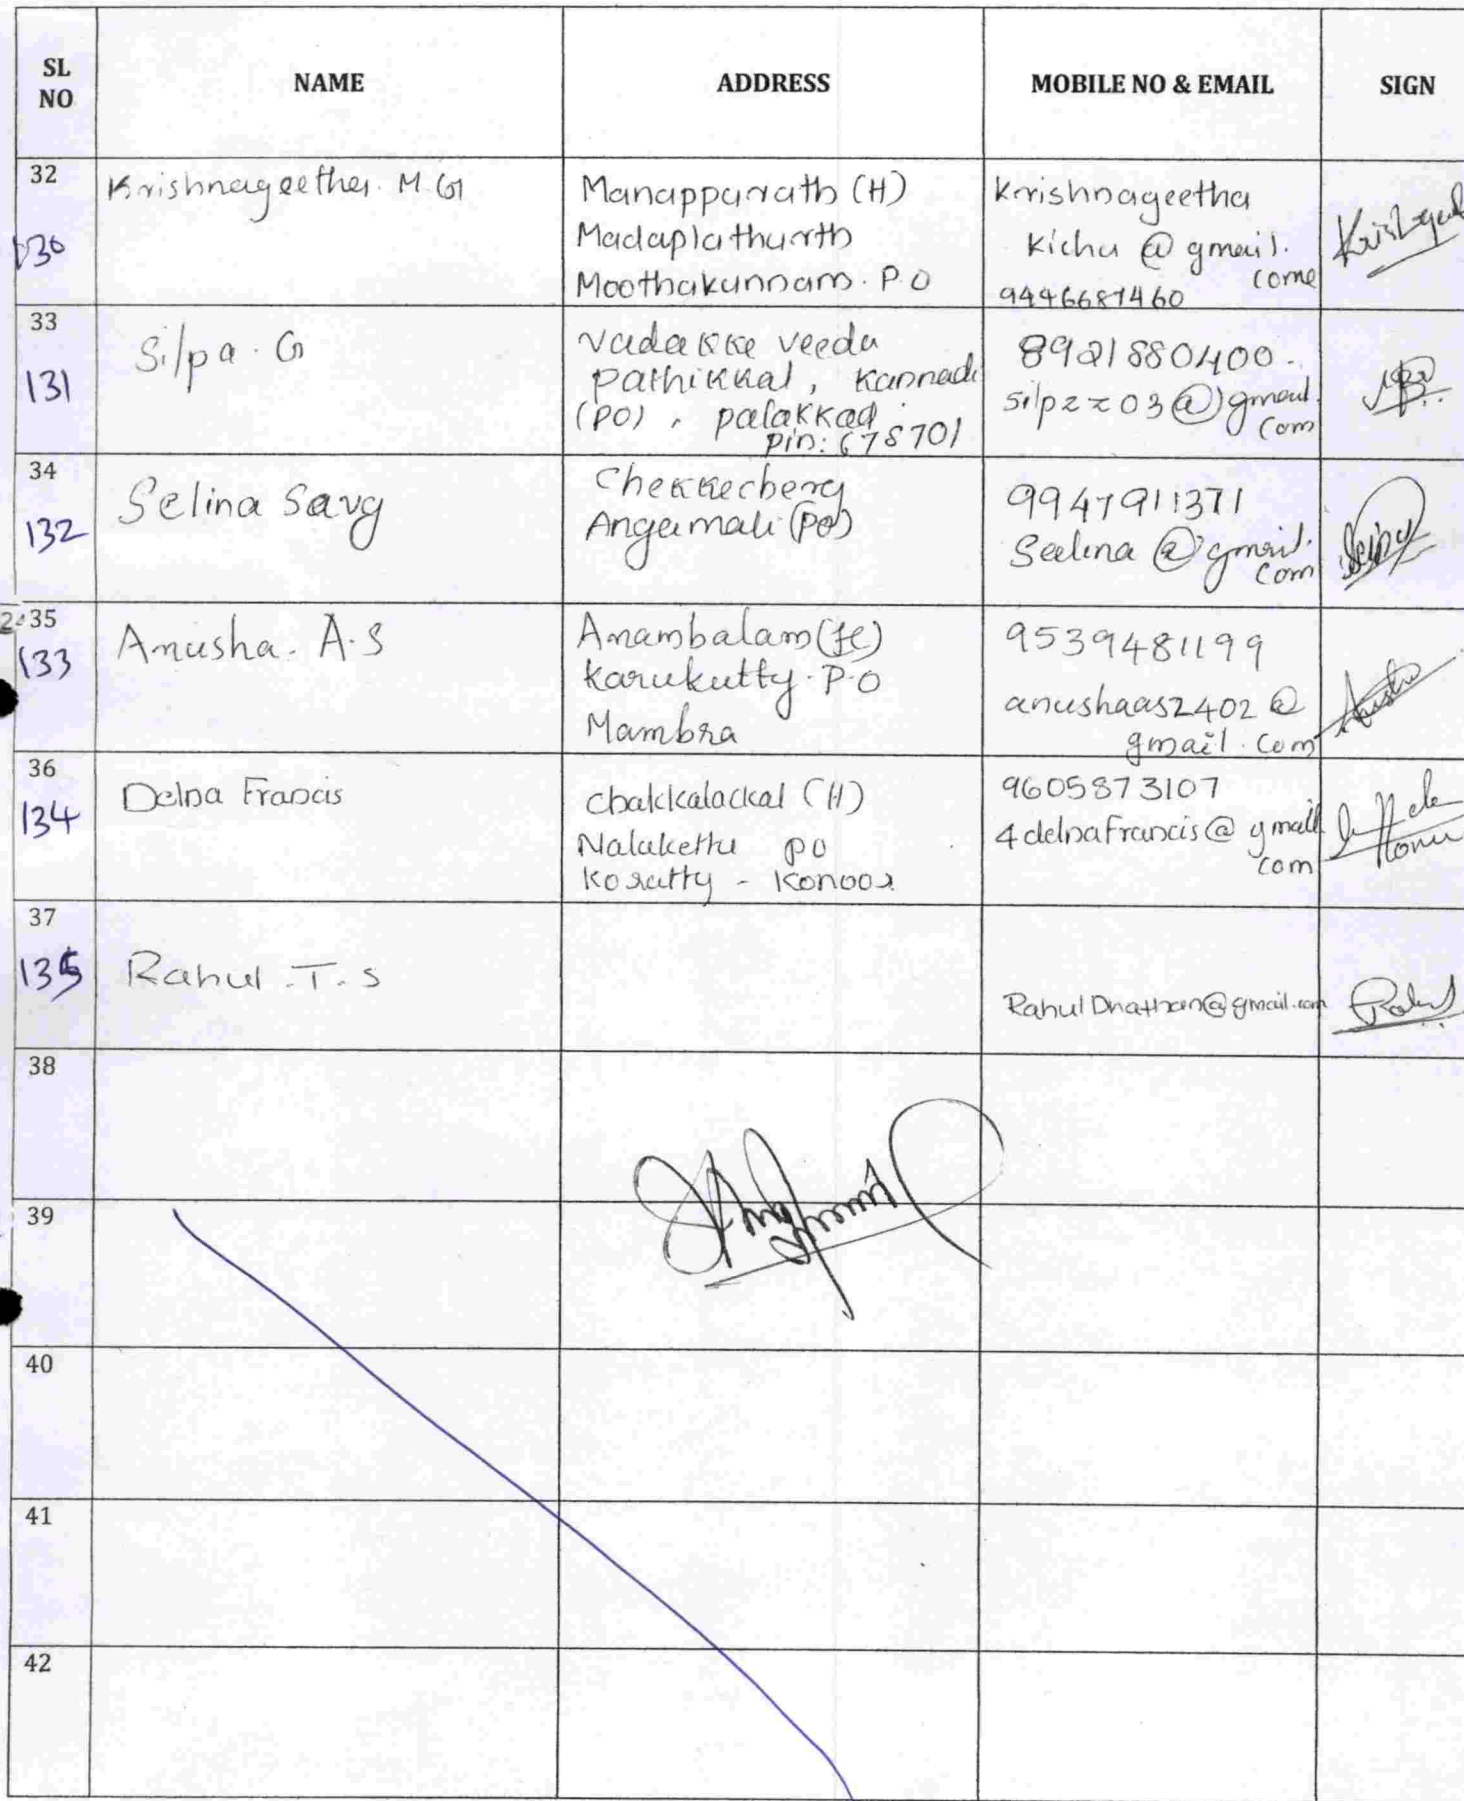 SL NO NAME ADDRESS MOBILE NO & EMAIL SIGN
32 130 Krishnageetha. M.G
Manappurath (H)
Madaplathurth
Moothakunnam. P.O
Krishnageetha
kichu @ gmail.
come
9446687460
33 131 Silpa. G
Vadakke veedu
pathikkal, Kannadi
(PO), palakkad
pin: 678701
8921880400.
silpzz03@gmail.
com
34 132 Selina Savy
Angamali (PO)
9947911371
Seelina @gmail.
com
35 133 Anusha. A.S
Anambalam (H)
Karukutty. P.O
Mambra
9539481199
anushaas2402@
gmail.com
36 134 Delna Francis
Chakkalackal (H)
Nalukettu PO
Koratty - Konoor
9605873107
4delnafrancis@gmail
com
37 135 Rahul. T. S
RahulDnathan@gmail.com
38
39
40
41
42